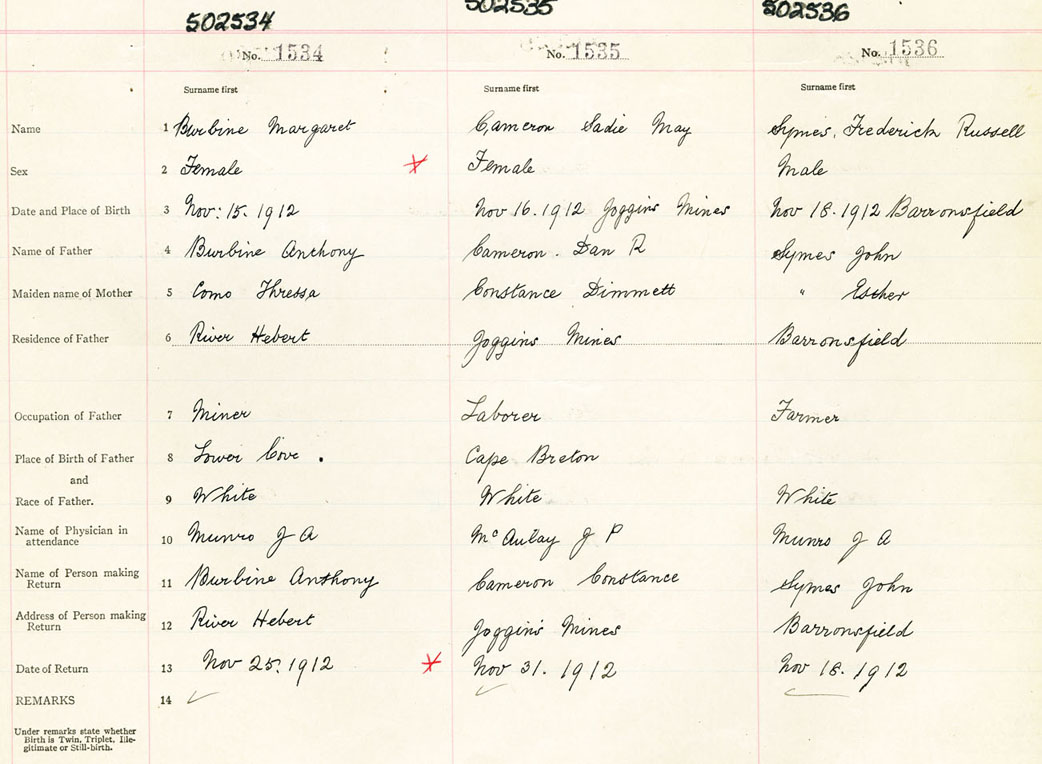 502534 502535 502536
No. 1534 No. 1535 No. 1536
Surname first Surname first Surname first
Name 1 Burbine Margaret Cameron Sadie May Symes, Frederick Russell
Sex 2 Female Female Male
Date and Place of Birth 3 Nov: 15. 1912 Nov 16. 1912 Joggins Mines Nov 18. 1912 Barronsfield
Name of Father 4 Burbine Anthony Cameron. Dan R Symes John
Maiden name of Mother 5 Como Thressa Constance Dimmett " Esther
Residence of Father 6 River Hebert Joggins Mines Barronsfield
Occupation of Father 7 Miner Laborer Farmer
Place of Birth of Father 8 Lower Cove. Cape Breton
and
Race of Father. 9 White White White
Name of Physician in
attendance 10 Munro J A McAulay J P Munro J A
Name of Person making
Return 11 Burbine Anthony Cameron Constance Symes John
Address of Person making
Return 12 River Hebert Joggins Mines Barronsfield
Date of Return 13 Nov 25. 1912 Nov 31. 1912 Nov 18. 1912
REMARKS 14
Under remarks state whether
Birth is Twin, Triplet, Ille-
gitimate or Still-birth.